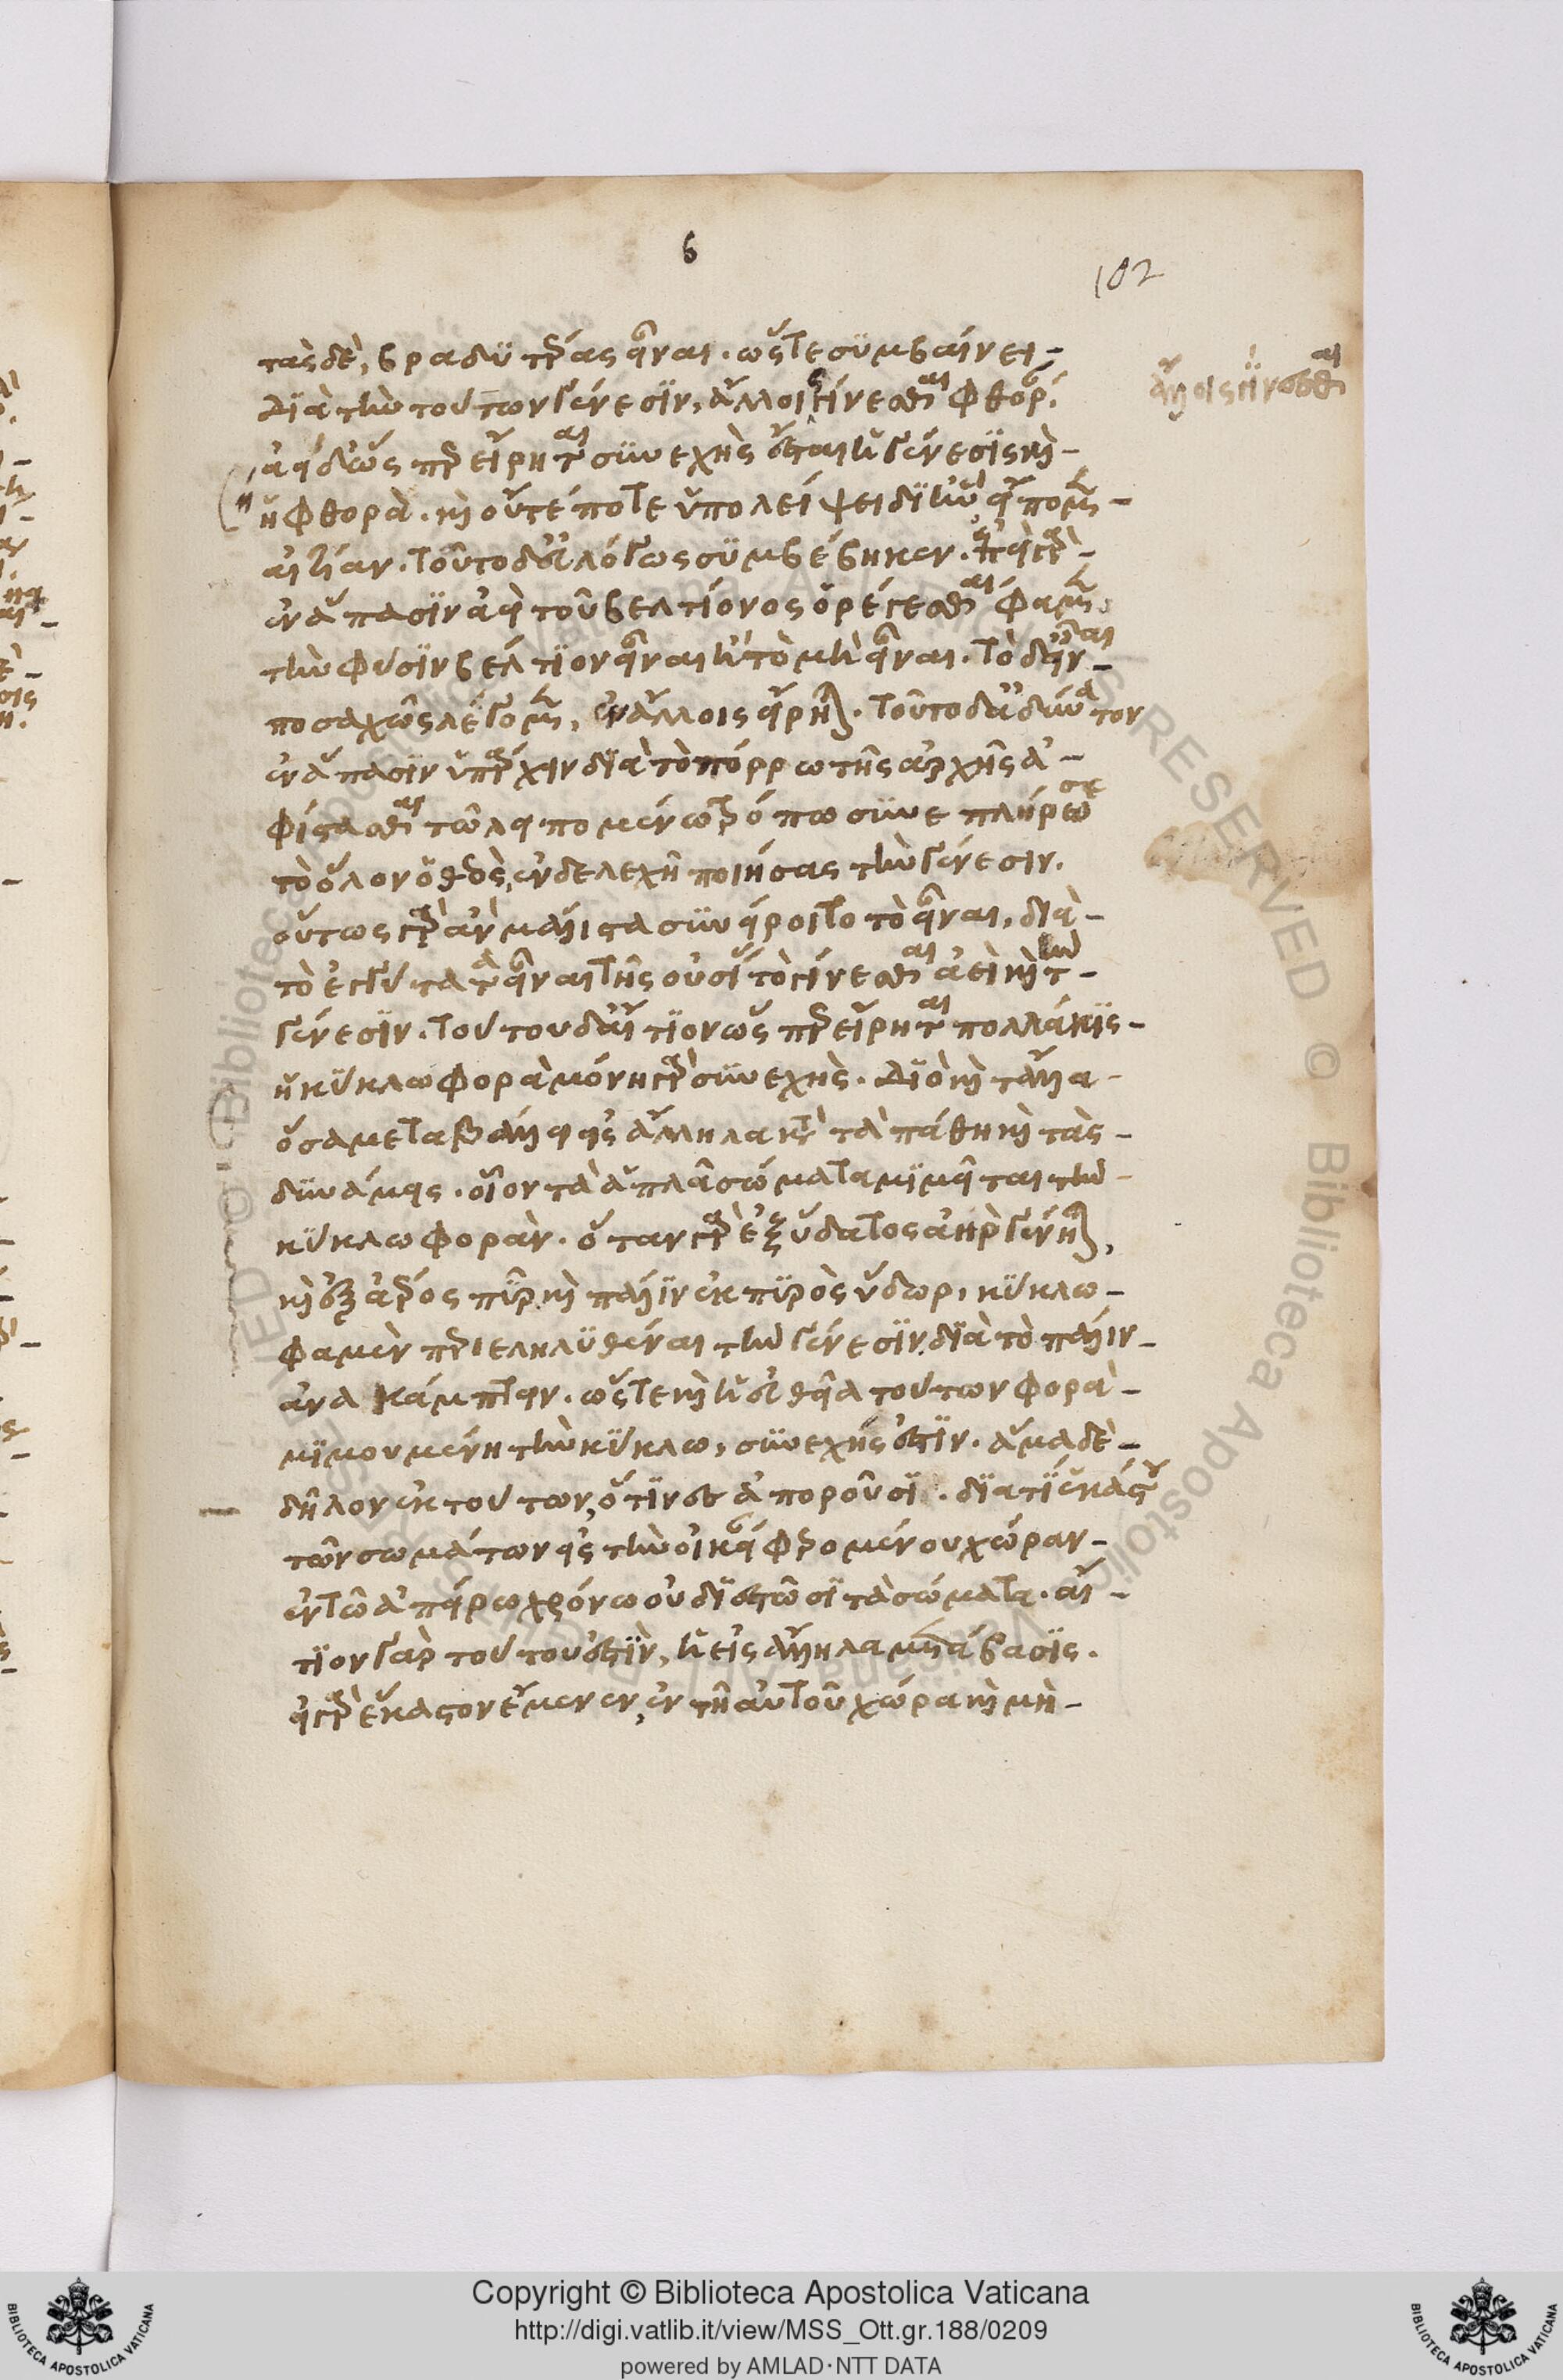 6
102
τὰς δὲ, βραδϋτέρας εἶναι. ὥστε σϋμβαίνει
Διὰ τὴν τούτων γένεσϊν, ἄλλοις γίνεσθαι φθορά.
ἄλλοις γίνεσθαι
ἀεὶ δ' ὥσπερ εἴρηται σϋνεχὴς ἔσται ἡ γένεσϊς καὶ
ἡ φθορὰ. καὶ οὔτέποτε ὑπολείψει δϊ' ἣν εἴπομεν
αἰτίαν. τοῦτο δ' εὐλόγως σϋμβέβηκεν. ἐπεὶ γὰρ
ἐν ἅπασϊν ἀεὶ τοῦ βελτίονος ὀρέγεσθαι φαμὲν
τὴν φύσϊν βέλτϊον εἶναι ἢ τὸ μὴ εἶναι. τὸ δ' εἶναι
ποσαχῶς λέγομεν, ἐν ἄλλοις εἴρηται. τοῦτο δ' ἀδύνατον
ἐν ἅπασϊν ὑπάρχειν δϊὰ τὸ πόρρω τῆς ἀρχῆς ἀ
φίστασθαι τῶ λειπομένω τρόπω σϋνεπλήρωσε
τὸ ὅλον ὁ θεὸς, ἐνδελεχῆ ποιήσας τὴν γένεσιν.
οὕτως γὰρ ἂν μάλιστα σϋνείροιτο τὸ εἶναι, διὰ
τὸ ἐγγύτατα εἶναι τῆς οὐσίας τὸ γίνεσθαι ἀεὶ καὶ τὴν
γένεσϊν. τούτου δ' αἴτϊον ὥσπερ εἴρηται πολλάκϊς
ἡ κύκλω φορὰ μόνη γὰρ σϋνεχὴς. Δϊὸ καὶ τἄλλα
ὅσα μεταβάλλει εἰς ἄλληλα κατὰ τὰ πάθη καὶ τὰς
δϋνάμεις. οἷον τὰ ἁπλᾶ σώματα μϊμεῖται τὴν
κύκλω φορὰν. ὅταν γὰρ ἐξ ὕδατος ἀὴρ γένηται,
καὶ ἐξ ἀέρος πῦρ καὶ πάλϊν ἐκ πϋρὸς ὕδωρ, κύκλω
φαμὲν περιεληλϋθέναι τὴν γένεσϊν. δϊὰ τὸ πάλιν
ἀνακάμπτειν. ὥστε καὶ ἡ εὐθεῖα τούτων φορὰ
μϊμουμένη τὴν κύκλω, σϋνεχής ἐστϊν. ἅμα δὲ
δῆλον ἐκ τούτων, ὅ τϊνες ἀποροῦσϊ. δϊατί ἑκάστου
τῶν σωμάτων εἰς τὴν οἰκείαν φερομένου χώραν
ἐν τῶ ἀπείρω χρόνω οὐ δϊεστῶσϊ τὰ σώματα. αἴ
τϊον γὰρ τούτου ἐστϊν, ἡ εἰς ἄλληλα μετάβασϊς.
εἰ γὰρ ἕκαστον ἔμενεν, ἐν τῆ αὑτοῦ χώρα καὶ μὴ